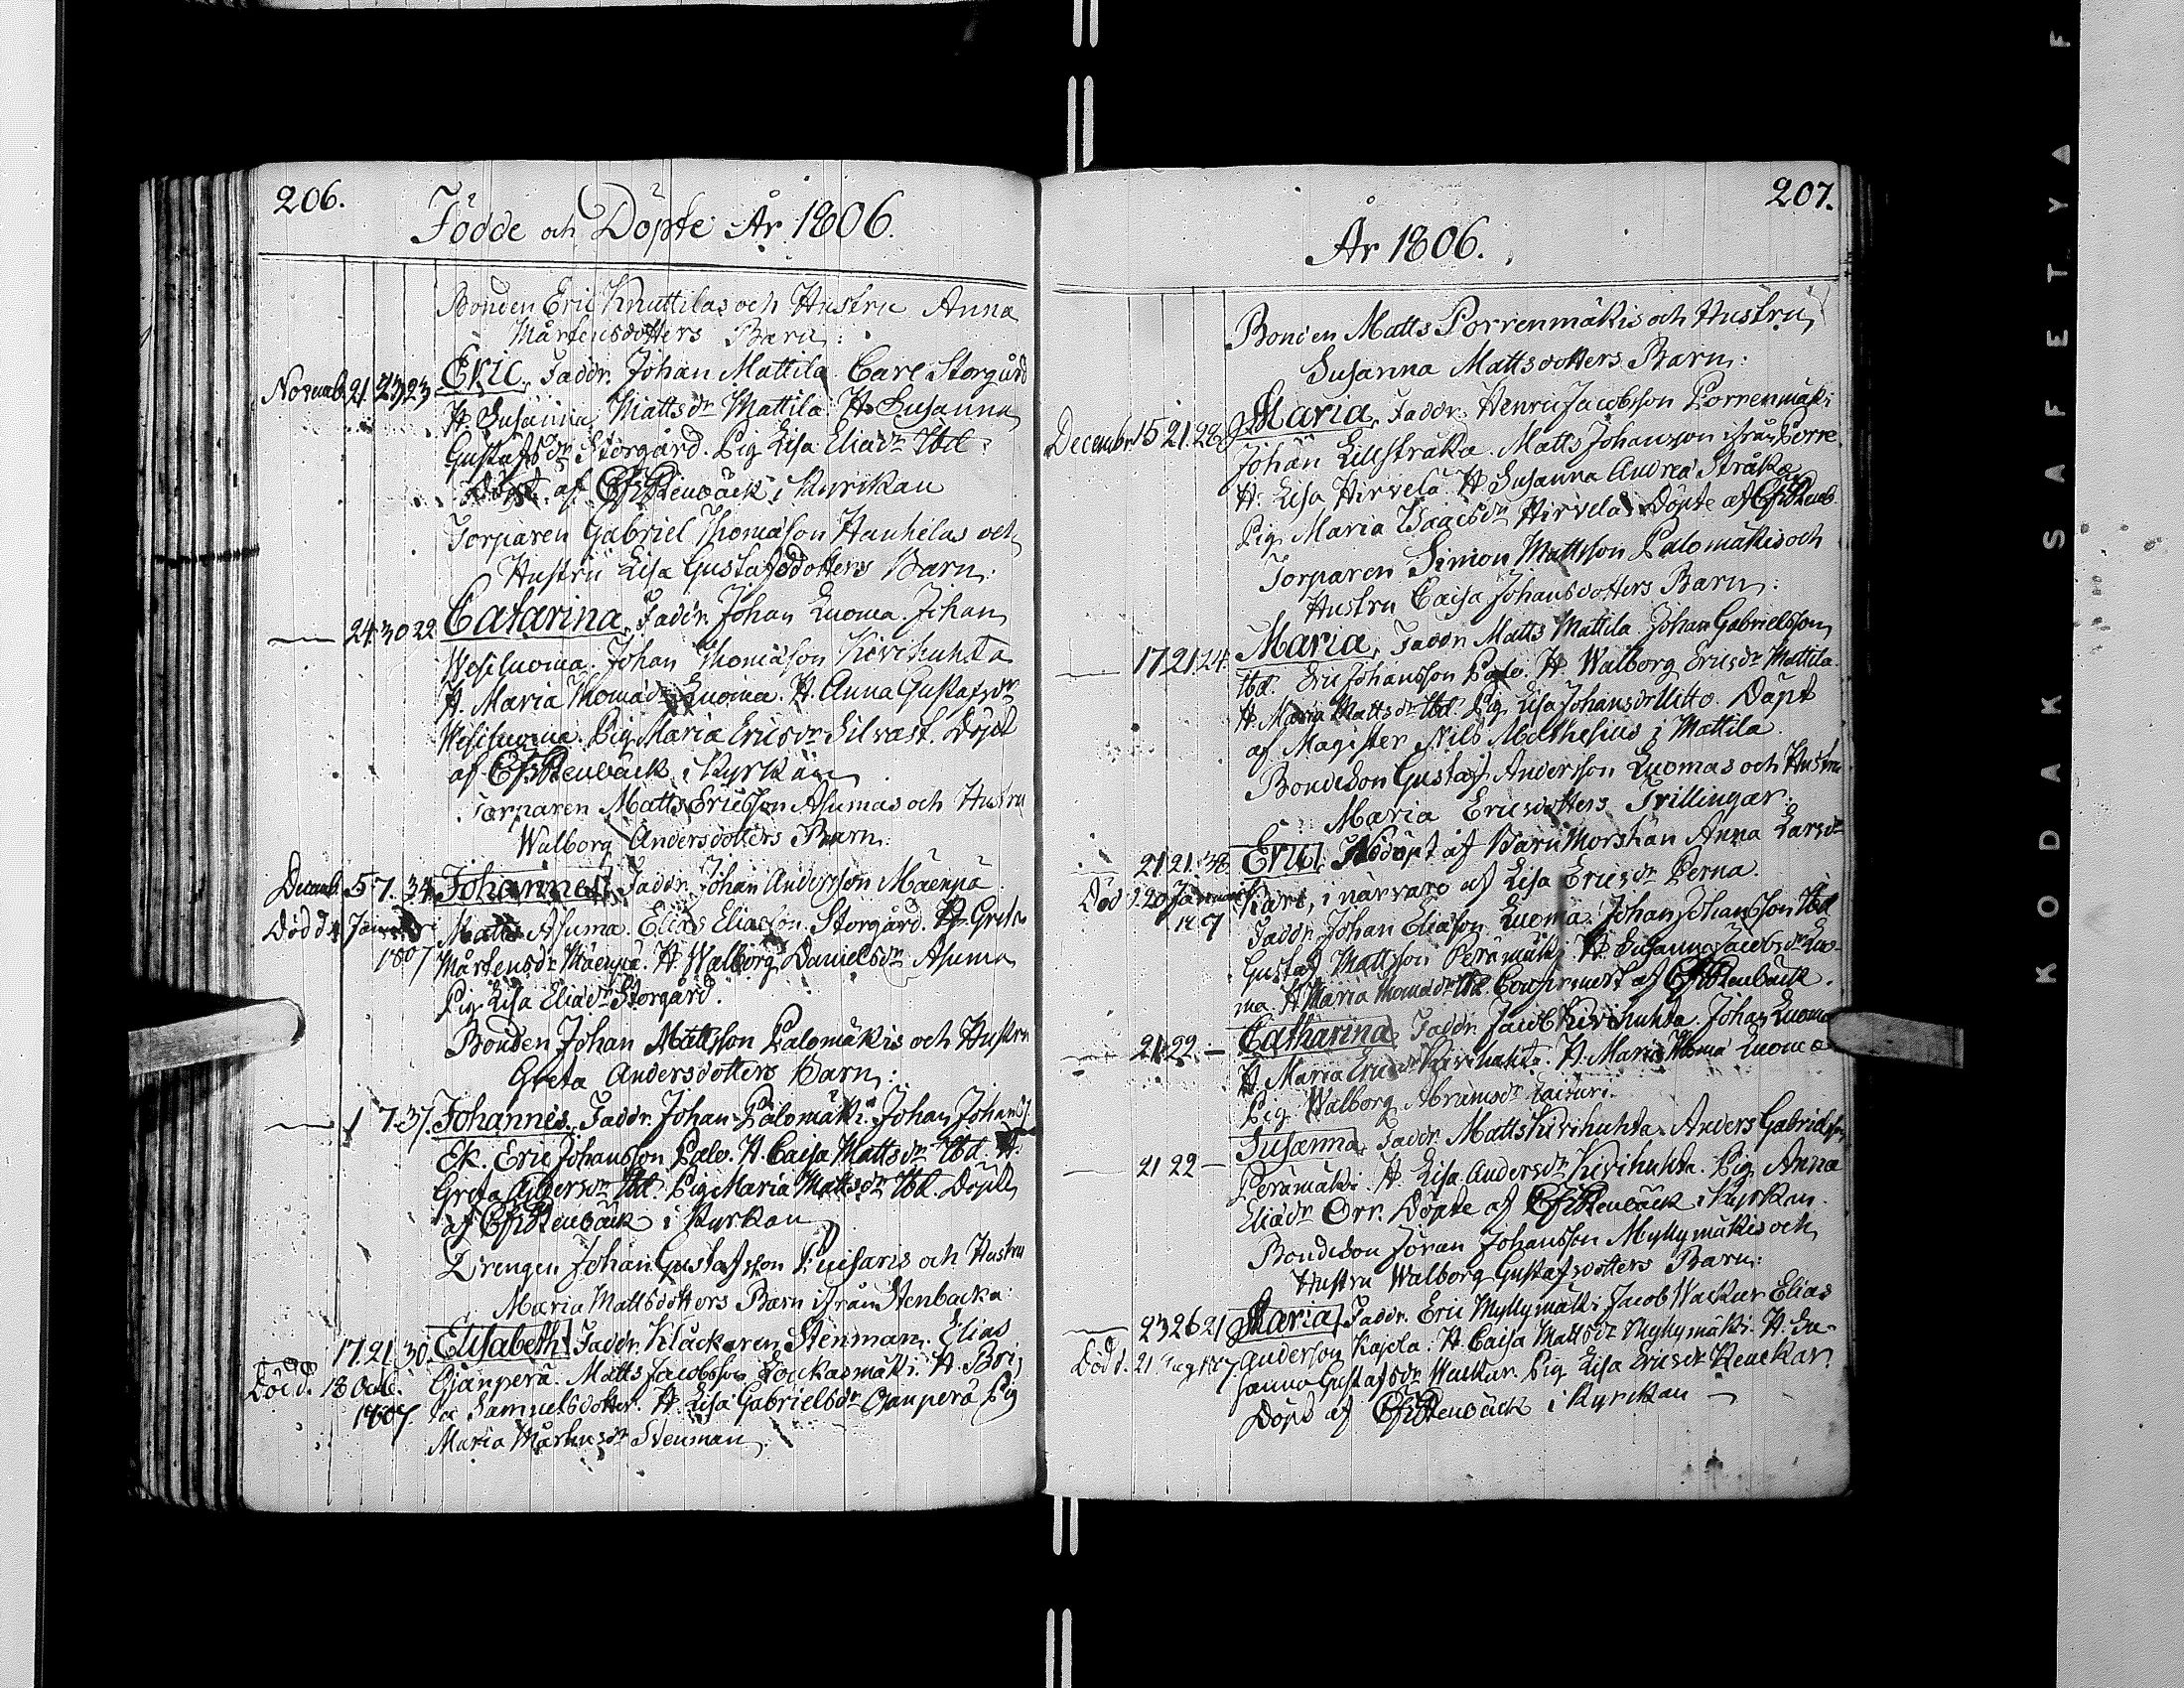 206.
Födde och Döpte År 1806.
Bonden Eric Knuttilas och Hustru Anna
Mårtensdotters Barn:
Novemb. 21. 23. 23. Eric, Faddr. Johan Mattila. Carl Storgård
H. Susanna Mattsdr Mattila. H. Susanna
Gustafsdr Storgård. Pig. Lisa Eliædr Ibd:
döpt af Stenbäck i Kyrckan
Torparen Gabriel Thomæson Hanhelas och
Hustru Lisa Gustafsdotters Barn:
— 24. 30. 22. Catarina, Faddr. Johan Luoma. Johan
Wesiluoma. Johan Thomæson Kivihuhta
H. Maria Thomædr Luoma. H. Anna Gustafsdr
Wesiluoma. Pig. Maria Ericsdr Silvast. Döpt
af Stenbäck i Kyrkan
Torparen Matts Ericsson Asumas och Hustru
Walborg Andersdotters Barn:
Decemb. 5 7. 34. Johannes, Faddr. Johan Andersson Mäenpä
Död d. 4 Januar. Matts Asuma. Elias Eliasson Storgård. H. Greta
1807 Mårtensdr Mäenpä. H. Walborg Danielsdr Asuma
Pig. Lisa Eliædr Storgård.
Bonden Johan Mattsson Palomäkis och Hustru
Greta Andersdotters Barn:
— 1 7. 37. Johannes. Faddr. Johan Palomäki. Johan Johanss.
Ek. Eric Johansson Palo. H. Caisa Mattsdr Ibd. H.
Greta Andersdr Ibd. Pig. Maria Mattsdr Ibd. Döpt
af Stenbäck i Kyrkan
Drengen Johan Gustafsson Puisaris och Hustru
Maria Mattsdotters Barn ifrån Stenbacka:
17. 21. 30. Elisabeth. Faddr. Klåckaren Stenman. Elias
Död d. 18 Ojanperä. Matts Jacobsson Kockasmäki. H. Bri
1807. ta Samuelsdotter. H. Lisa Gabrielsdr Ojanperä Pig
Maria Mårtensdr Stenman.
207.
År 1806.
Bonden Matts Porrenmäkis och Hustru
Susanna Mattsdotters Barn:
Decembr. 15 21. 28. Maria, Faddr. Henric Jacobsson Porrenmäki
Johan Lillstråka. Matts Johansson ifrån Porre
H. Lisa Hirvelä. H. Susanna Andreæ Stråka
Pig. Maria Isaacsdr Hirvelä. Döpte af Stenb.
Torparen Simon Mattsson Palomäkis och
Hustru Caisa Johansdotters Barn:
— 17. 21. 24. Maria, Faddr. Matts Mattila. Johan Gabrielsson
Ibd. Eric Johansson Palo. H. Walborg Ericsdr Mattila.
H. Maria Mattsdr Ibd. Pig. Lisa Johansdr Utto. Döpt
af Magister Nils Mathesius i Mattila.
Bondeson Gustaf Andersson Luomas och Hustru
Maria Ericsdotters Trillingar.
21 21. 38. Eric, Nödöpt af Barnmorskan Anna Larsdr
Död d. 20 Januarii i närvaro af Lisa Ericsdr Perna.
Faddr. Johan Eliason Luoma. Johan Johansson Ibd
Gustaf Mattsson Perämäki. H. Susanna Jacobsdr Luo-
ma. H. Maria Thomædr Ibd. Confirmert af Stenbäck.
— 21. 22. — Catharina, Faddr. Jacob Kivihuhta. Johan Luoma
H. Maria Ericsdr Kivihuhta. H. Maria Thomæ Luoma
Pig. Walborg Abramsdr
— 21 22 — Susanna, Faddr. Matts Kivihuhta. Anders Gabrielsson
Perämäki. H. Lisa Andersdr Kivihuhta. Pig. Anna
Eliædr Orr. Döpte af Stenbäck i Kyrkan.
Bondeson Jöran Johansson Myllymäkis och
Hustru Walborg Gustafsdotters Barn:
— 23 26 21 Maria, Faddr. Eric Myllymäki. Jacob Wackur. Elias
Död d. 21 Aug. 1807 Anderson Kajela. H. Caisa Mattsdr Myllymäki. H. Su-
sanna Gustafsdr Wackur. Pig. Lisa Ericsdr Renckar.
Döpt af Stenbäck i Kyrckan —
KODAK SAFETY F